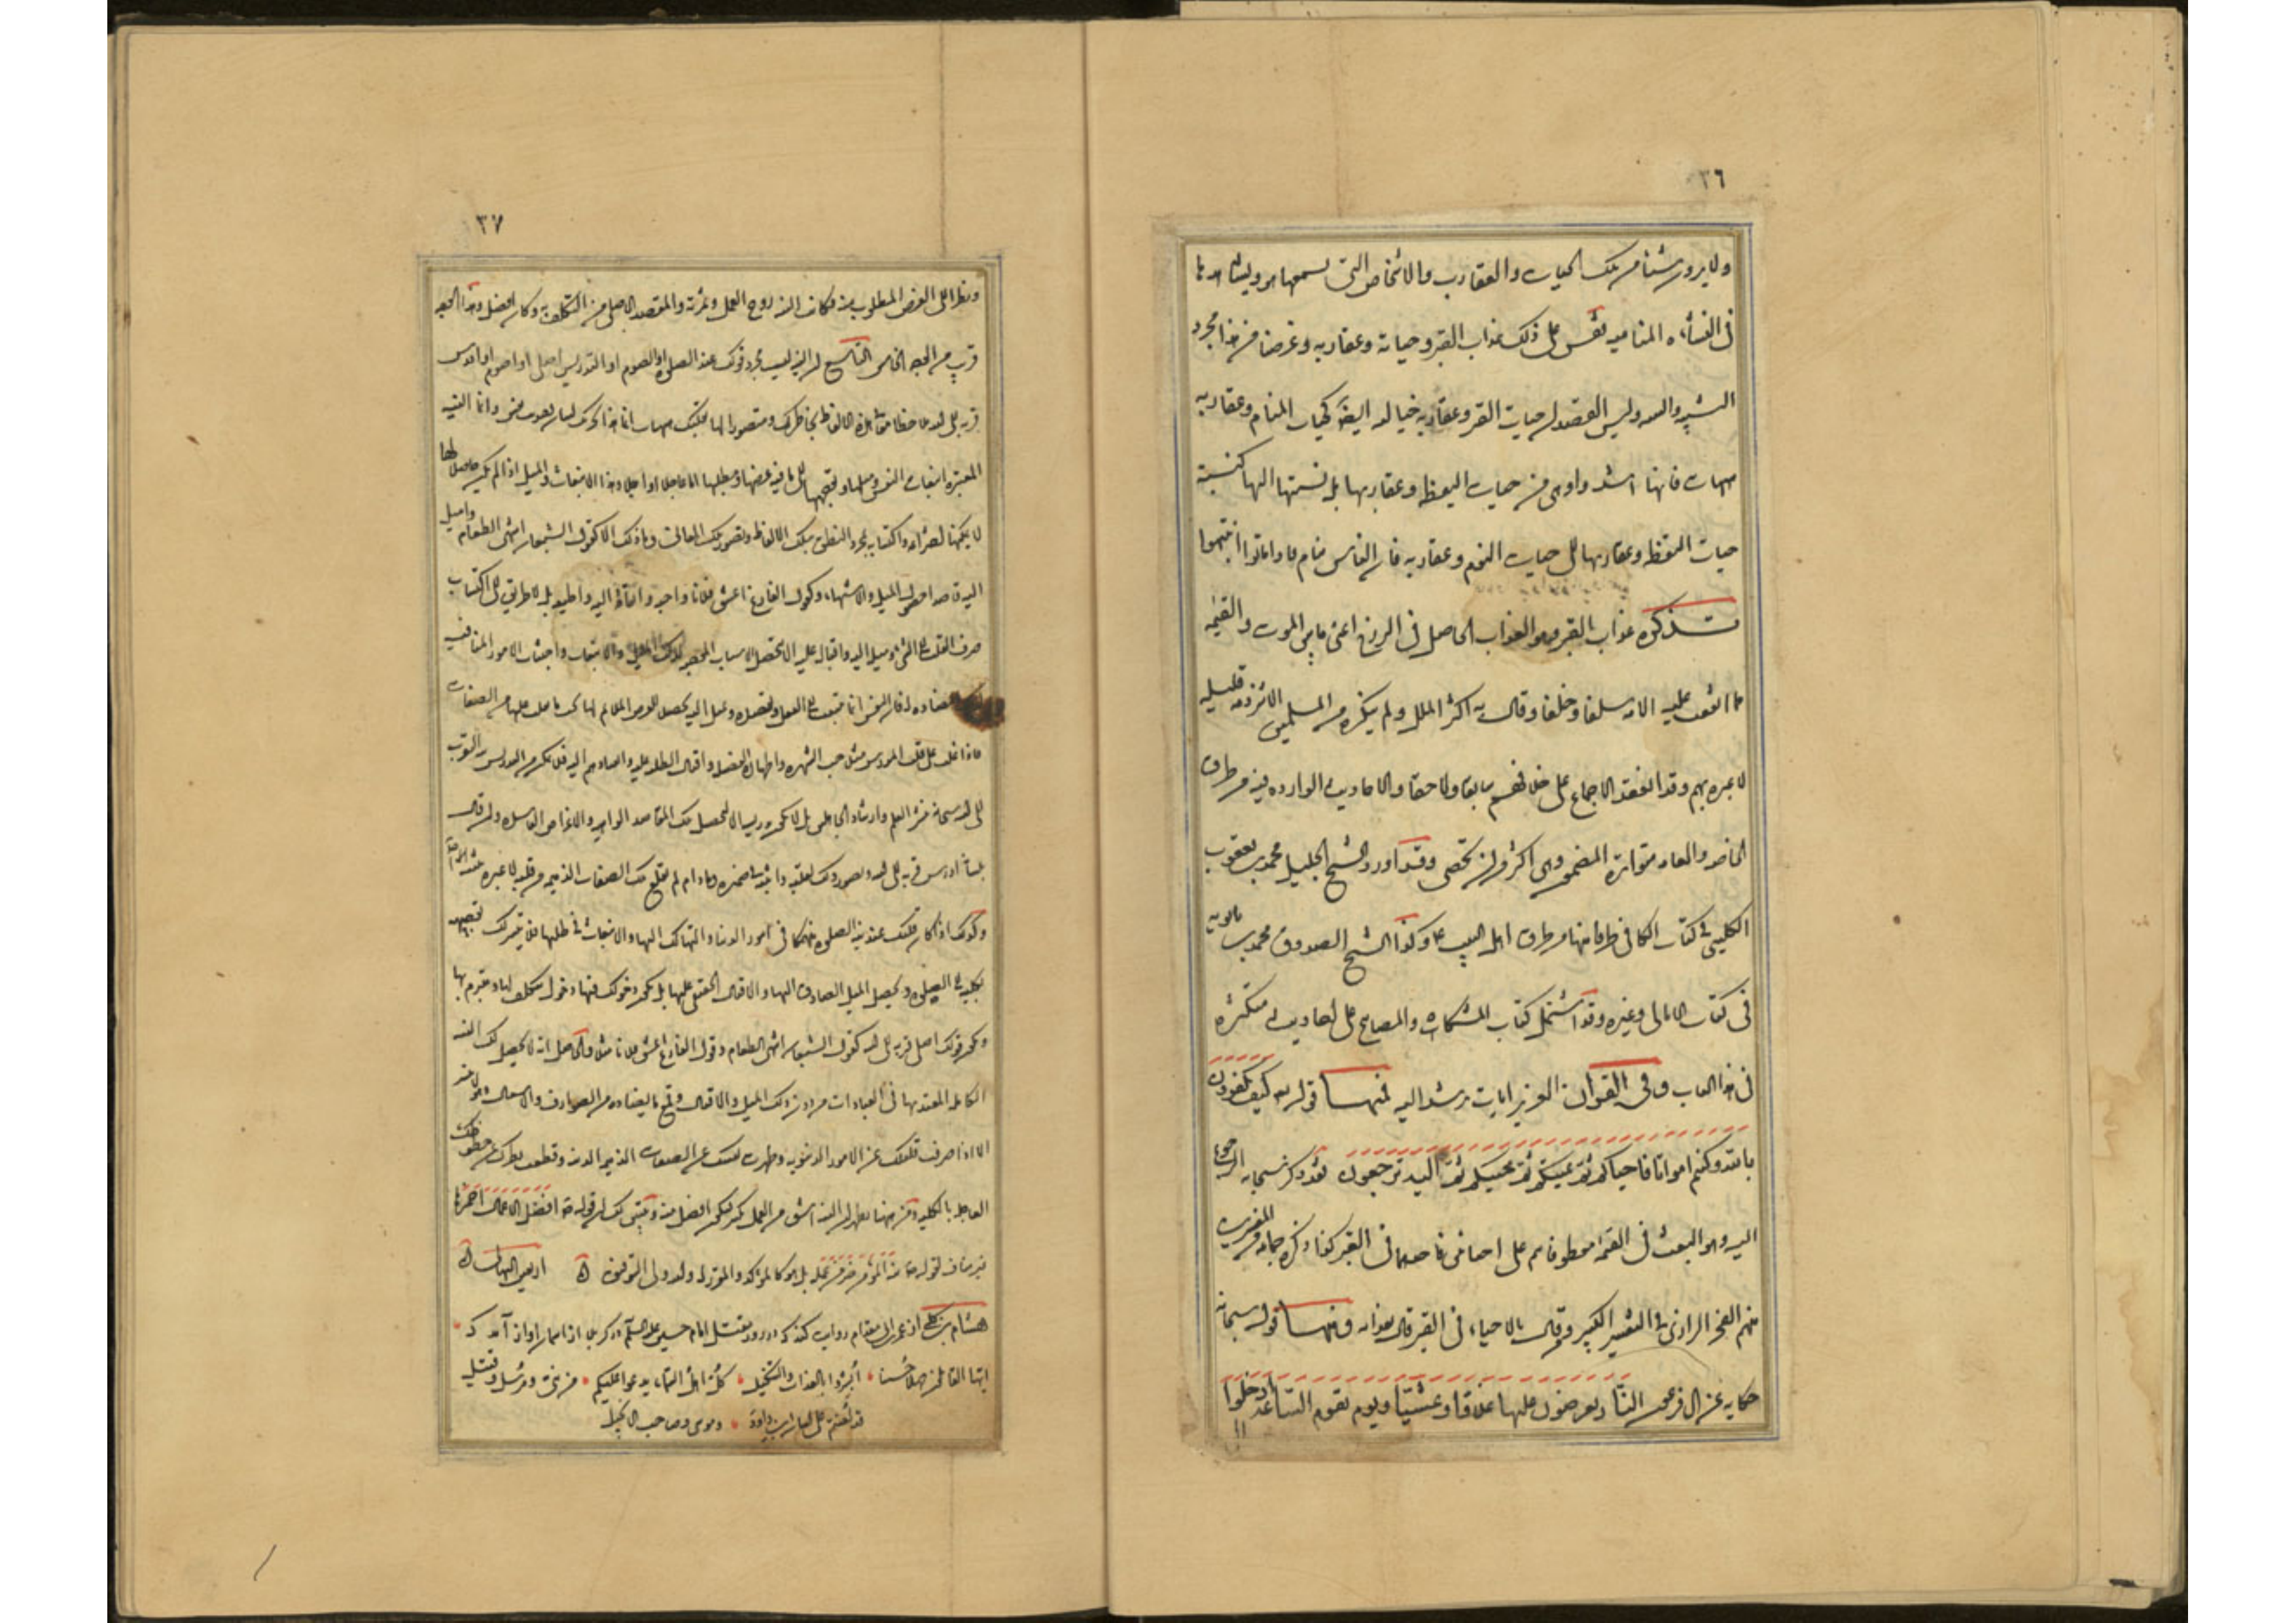 ٣٦
ولا يرون شيئا من تلك الحيات والعقارب والاشخاص التي يسمعها هو ويشاهدها
في النشأه المناميه فقس على ذلك عذاب القبر وحياته وعقاربه وغرضنا من هذا مجرد
التشبيه وليس المقصد ان حيات القبر وعقاربه خياليه ايضا كحيات المنام وعقاربه
هيهات فانها اشد وادهى من حيات اليقظه وعقاربها بل نسبتها اليها كنسبة
حيات اليقظه وعقاربها الى حيات النوم وعقاربه فان الناس نيام فاذا ماتوا انتبهوا
تذكره عذاب القبر وهو العذاب الحاصل في البرزخ اعنى ما بين الموت والقيمه
مما اتفقت عليه الامه سلفا وخلفا وقال به اكثر الملل ولم ينكره من المسلمين الا شرذمه قليله
لا عبره بهم وقد انعقد الاجماع على خلافهم سابقا ولاحقا والاحاديث الوارده فيه من طرق
الخاصه والعامه متواترة المضمون وهى اكثر من ان تحصى وقد اورد الشيخ الجليل محمد بن يعقوب
الكلينى في كتاب الكافى طرفا منها من طرق اهل البيت ع وكذا الشيخ الصدوق محمد بن بابويه
فى كتاب الامالى وغيره وقد اشتمل كتاب المشكاة والمصابيح على احاديث متكثره
فى هذا الباب وفى القران العزيز ايات ترشد اليه فمنها قوله تعه كيف تكفرون
بالله وكنتم امواتا فاحياكم ثم يميتكم ثم يحييكم ثم اليه ترجعون فقد ذكر سبحانه الرجوع
اليه وهو البعث فى القيمه معطوفا بثم على احيائين فاحدهما فى القبر كذا ذكره جماعه من المفسرين
منهم الفخر الرازى فى التفسير الكبير وقال بالاحياء فى القبر قال بعذابه ومنها قوله سبحانه
حكايه عن ال فرعون النار يعرضون عليها غدوا وعشيا ويوم تقوم الساعه ادخلوا
٣٧
ونظرا الى الغرض المطلوب منه فكانت النيه روح العمل وثمرته والمقصد الاصلى من التكليف به وكان افضل وهذا الوجه
قريب من الوجه الخامس التاسع ان النيه ليست مجرد قولك عند الصلوة او الصوم او التدريس اصلى او اصوم او ادرس
قربه الى الله ملاحظا معانى هذه الالفاظ بخاطرك ومتصورا لها بقلبك هيهات انما هذا تحريك لسان وحديث نفس وانما النيه
المعتبره انبعاث النفس وميلها وتوجهها الى ما فيه غرضها ومطلبها اما عاجلا او اجلا وهذا الانبعاث والميل اذا لم يكن حاصلا لها
لا يمكنها اختراعه واكتسابه بمجرد النطق بتلك الالفاظ وتصور تلك المعانى وما ذلك الا كقول الشبعان اشتهى الطعام واميل
اليه قاصدا حصول الميل والاشتهاء وكقول الفارغ اعشق فلانا واحبه وانقاد اليه واطيعه بل لا طريق الى اكتساب
صرف القلب الى الشىء وميله اليه واقباله عليه الا بتحصيل الاسباب الموجبه لذلك الميل والانبعاث واجتناب الامور المنافيه
لذلك المضاده له فان النفس انما تنبعث الى الفعل وتقصده وتميل اليه تحصيلا للغرض الملائم لها بحسب ما يغلب عليها من الصفات
فاذا غلب على قلب المدرس مثلا حب الشهره واظهار الفضيله واقبال الطلبه عليه وانقيادهم اليه فلا يتمكن من التدريس بنية التقرب
الى الله سبحانه بنشر العلم وارشاد الجاهلين بل لا يكون تدريسه الا لتحصيل تلك المقاصد الواهيه والاغراض الفاسده وان قال
بلسانه ادرس قربه الى الله وتصور ذلك بقلبه واثبته فى ضميره وما دام لم يقلع تلك الصفات الذميمه من قلبه لا عبره بنيته اصلا
وكذلك اذا كان قلبك عند نية الصلوة منهمكا فى امور الدنيا والتهالك عليها والانبعاث فى طلبها فلا يتيسر لك توجيهه
بكليته الى الصلوة وتحصيل الميل الصادق اليها والاقبال الحقيقى عليها بل يكون دخولك فيها دخول متكلف لها متبرم بها
ويكون قولك اصلى قربه الى الله كقول الشبعان اشتهى الطعام وقول الفارغ اعشق فلانا مثلا والحاصل انه لا يحصل لك النيه
الكامله المعتد بها فى العبادات من دون ذلك الميل والاقبال وقمع ما يضاده من الصوارف والاشغال وهو لا يتيسر
الا اذا صرفت قلبك عن الامور الدنيويه وطهرت نفسك عن الصفات الذميمه الدنيه وقطعت نظرك عن حظوظك
العاجله بالكليه ومن هنا يظهر ان النيه اشق من العمل بكثير فيكون افضل منه وتبين لك ان قوله ص افضل الاعمال احمزها
غير مناف لقوله ص نية المؤمن خير من عمله بل هو كالمؤكد والمقرر له والله ولى التوفيق اربعين البهائى
هشام بن كلبى از عمرو بن ابى مقدام روايت كند كه در روز مقتل امام حسين عليه السلام در كربلا از آسمان آواز آمد كه
ايها القاتلون جهلا حسينا ابشروا بالعذاب والتنكيل كل اهل السماء يدعوا عليكم من نبى ومرسل وقتيل
قد لعنتم على لسان ابن داود وموسى وصاحب الانجيل